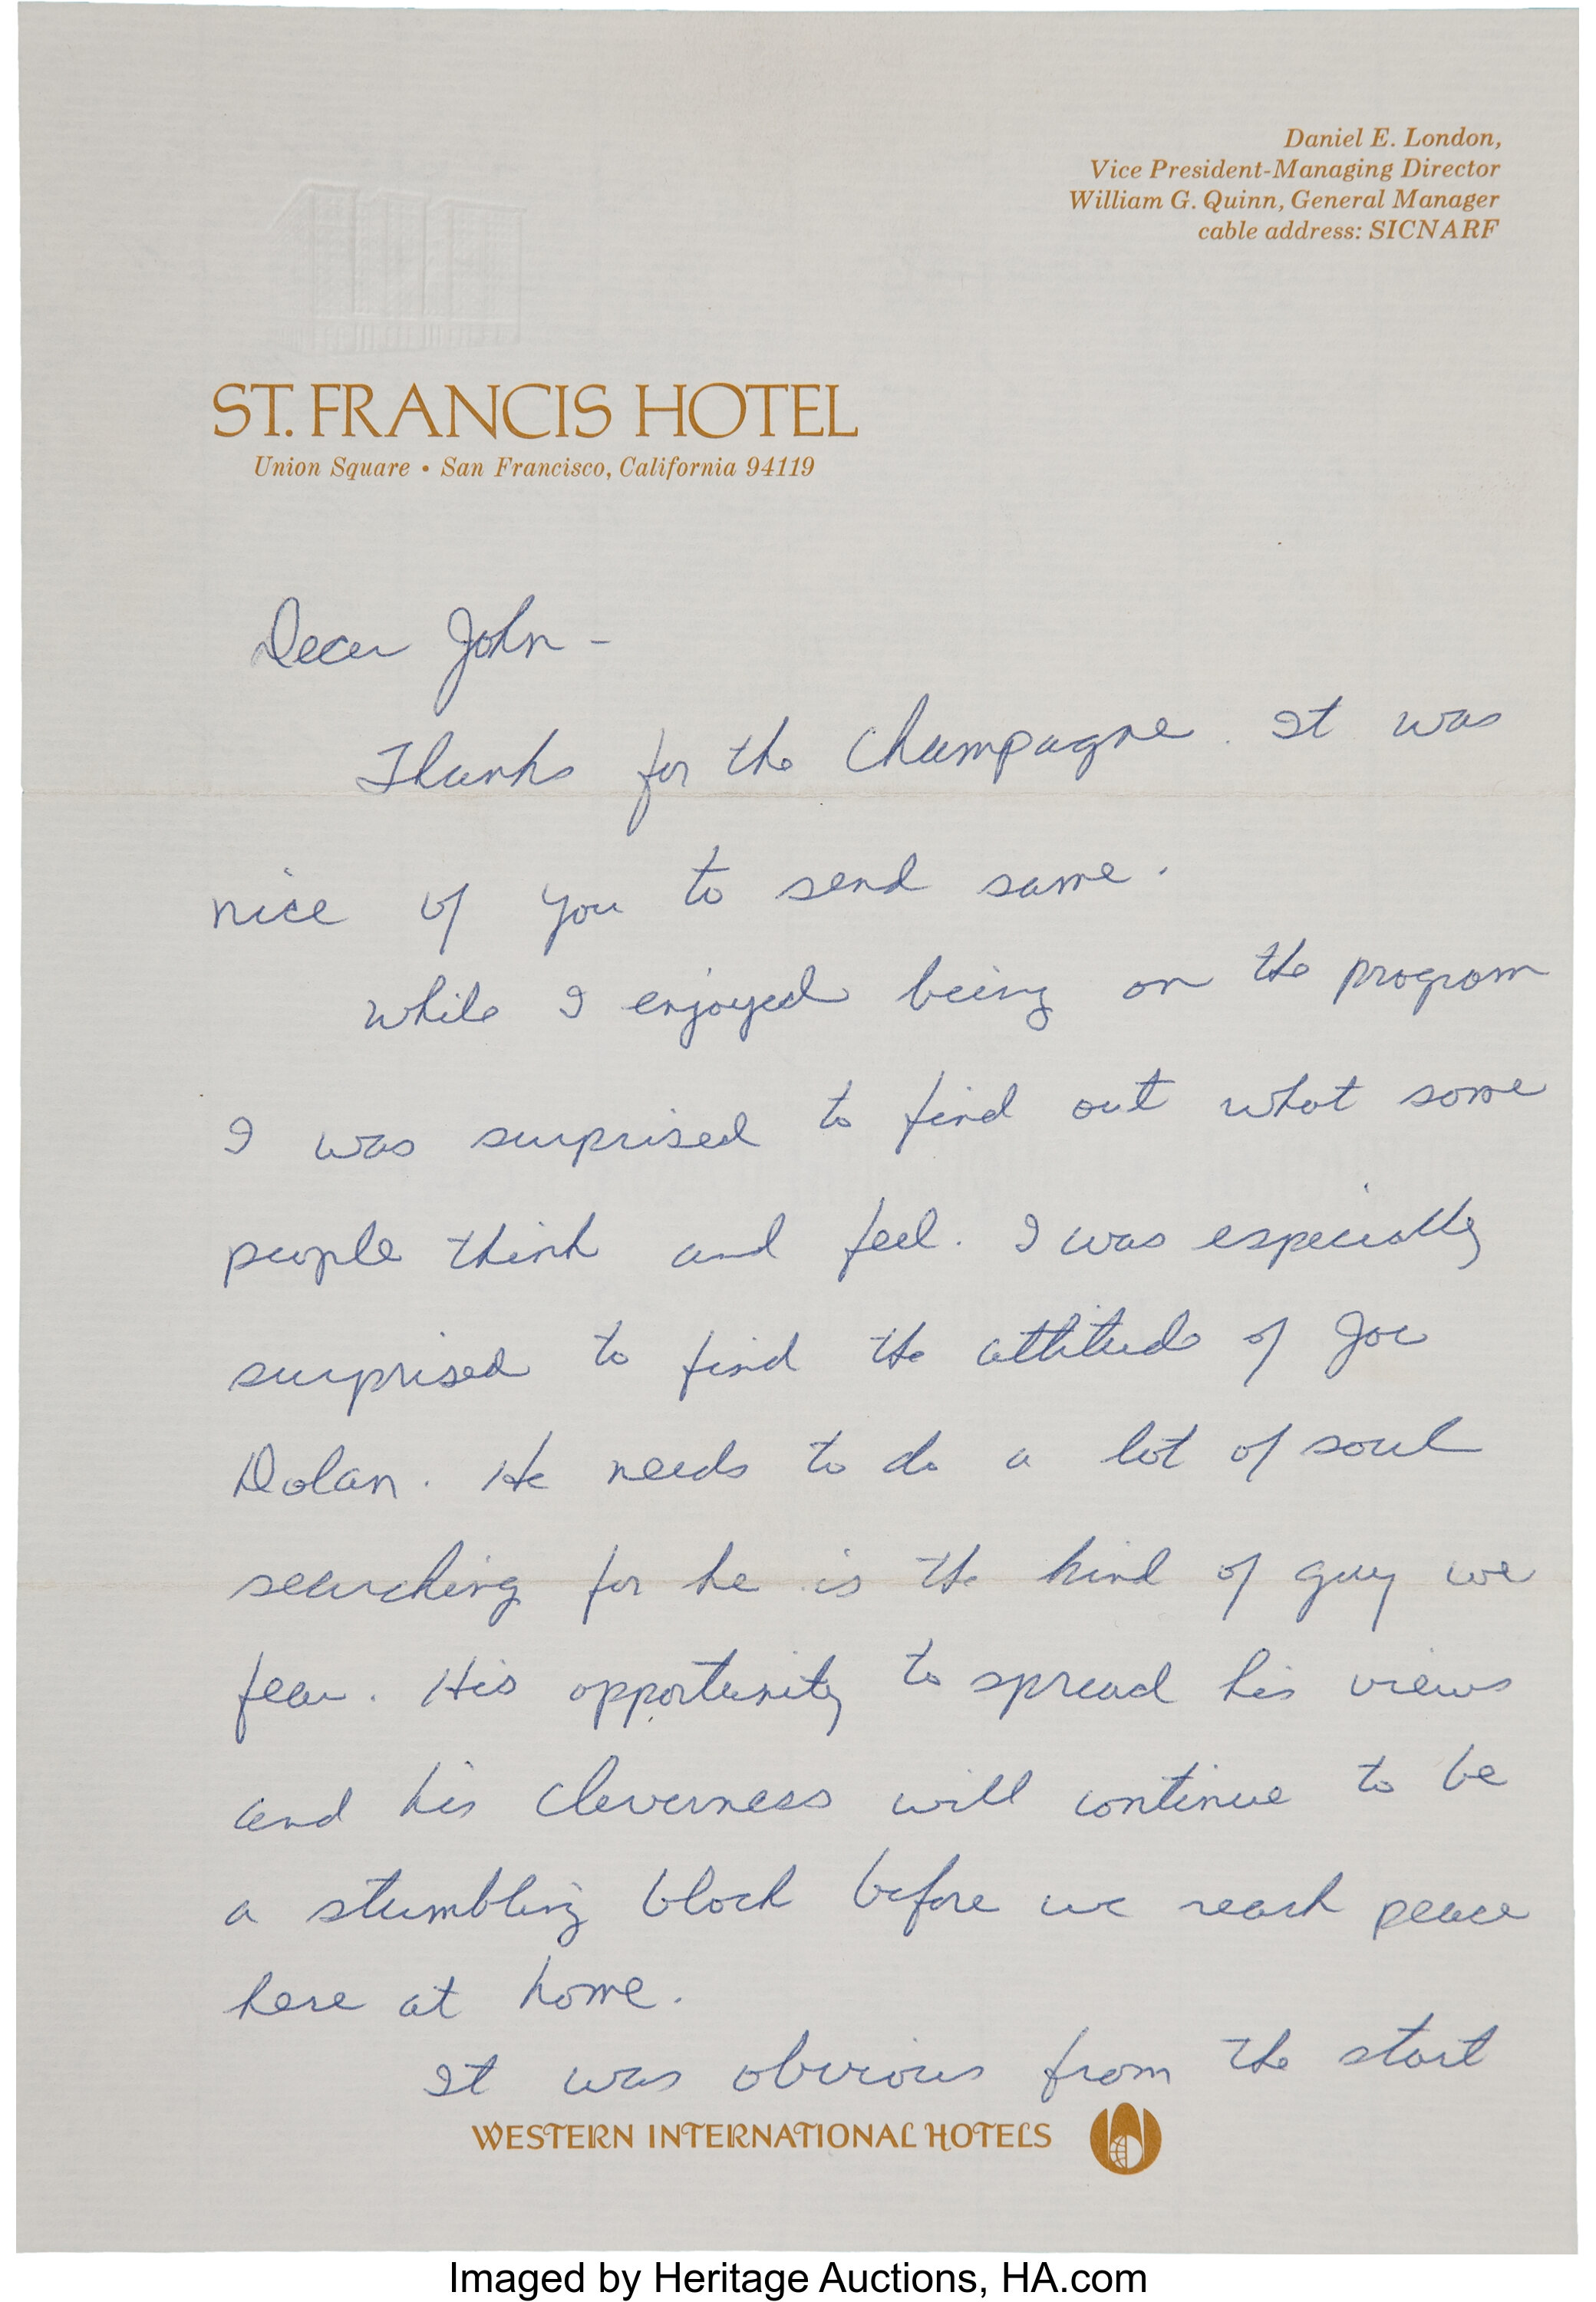 Daniel E. London,
Vice President-Managing Director
William G. Quinn, General Manager
cable address: SICNARF
ST. FRANCIS HOTEL
Union Square • San Francisco, California 94119
Dear John -
Thanks for the Champagne. It was
nice of you to send same.
While I enjoyed being on the program
I was surprised to find out what some
people think and feel. I was especially
surprised to find the attitude of Joe
Dolan. He needs to do a lot of soul
searching for he is the kind of guy we
fear. His opportunity to spread his views
and his cleverness will continue to be
a stumbling block before we reach peace
here at home.
It was obvious from the start
WESTERN INTERNATIONAL HOTELS
Imaged by Heritage Auctions, HA.com